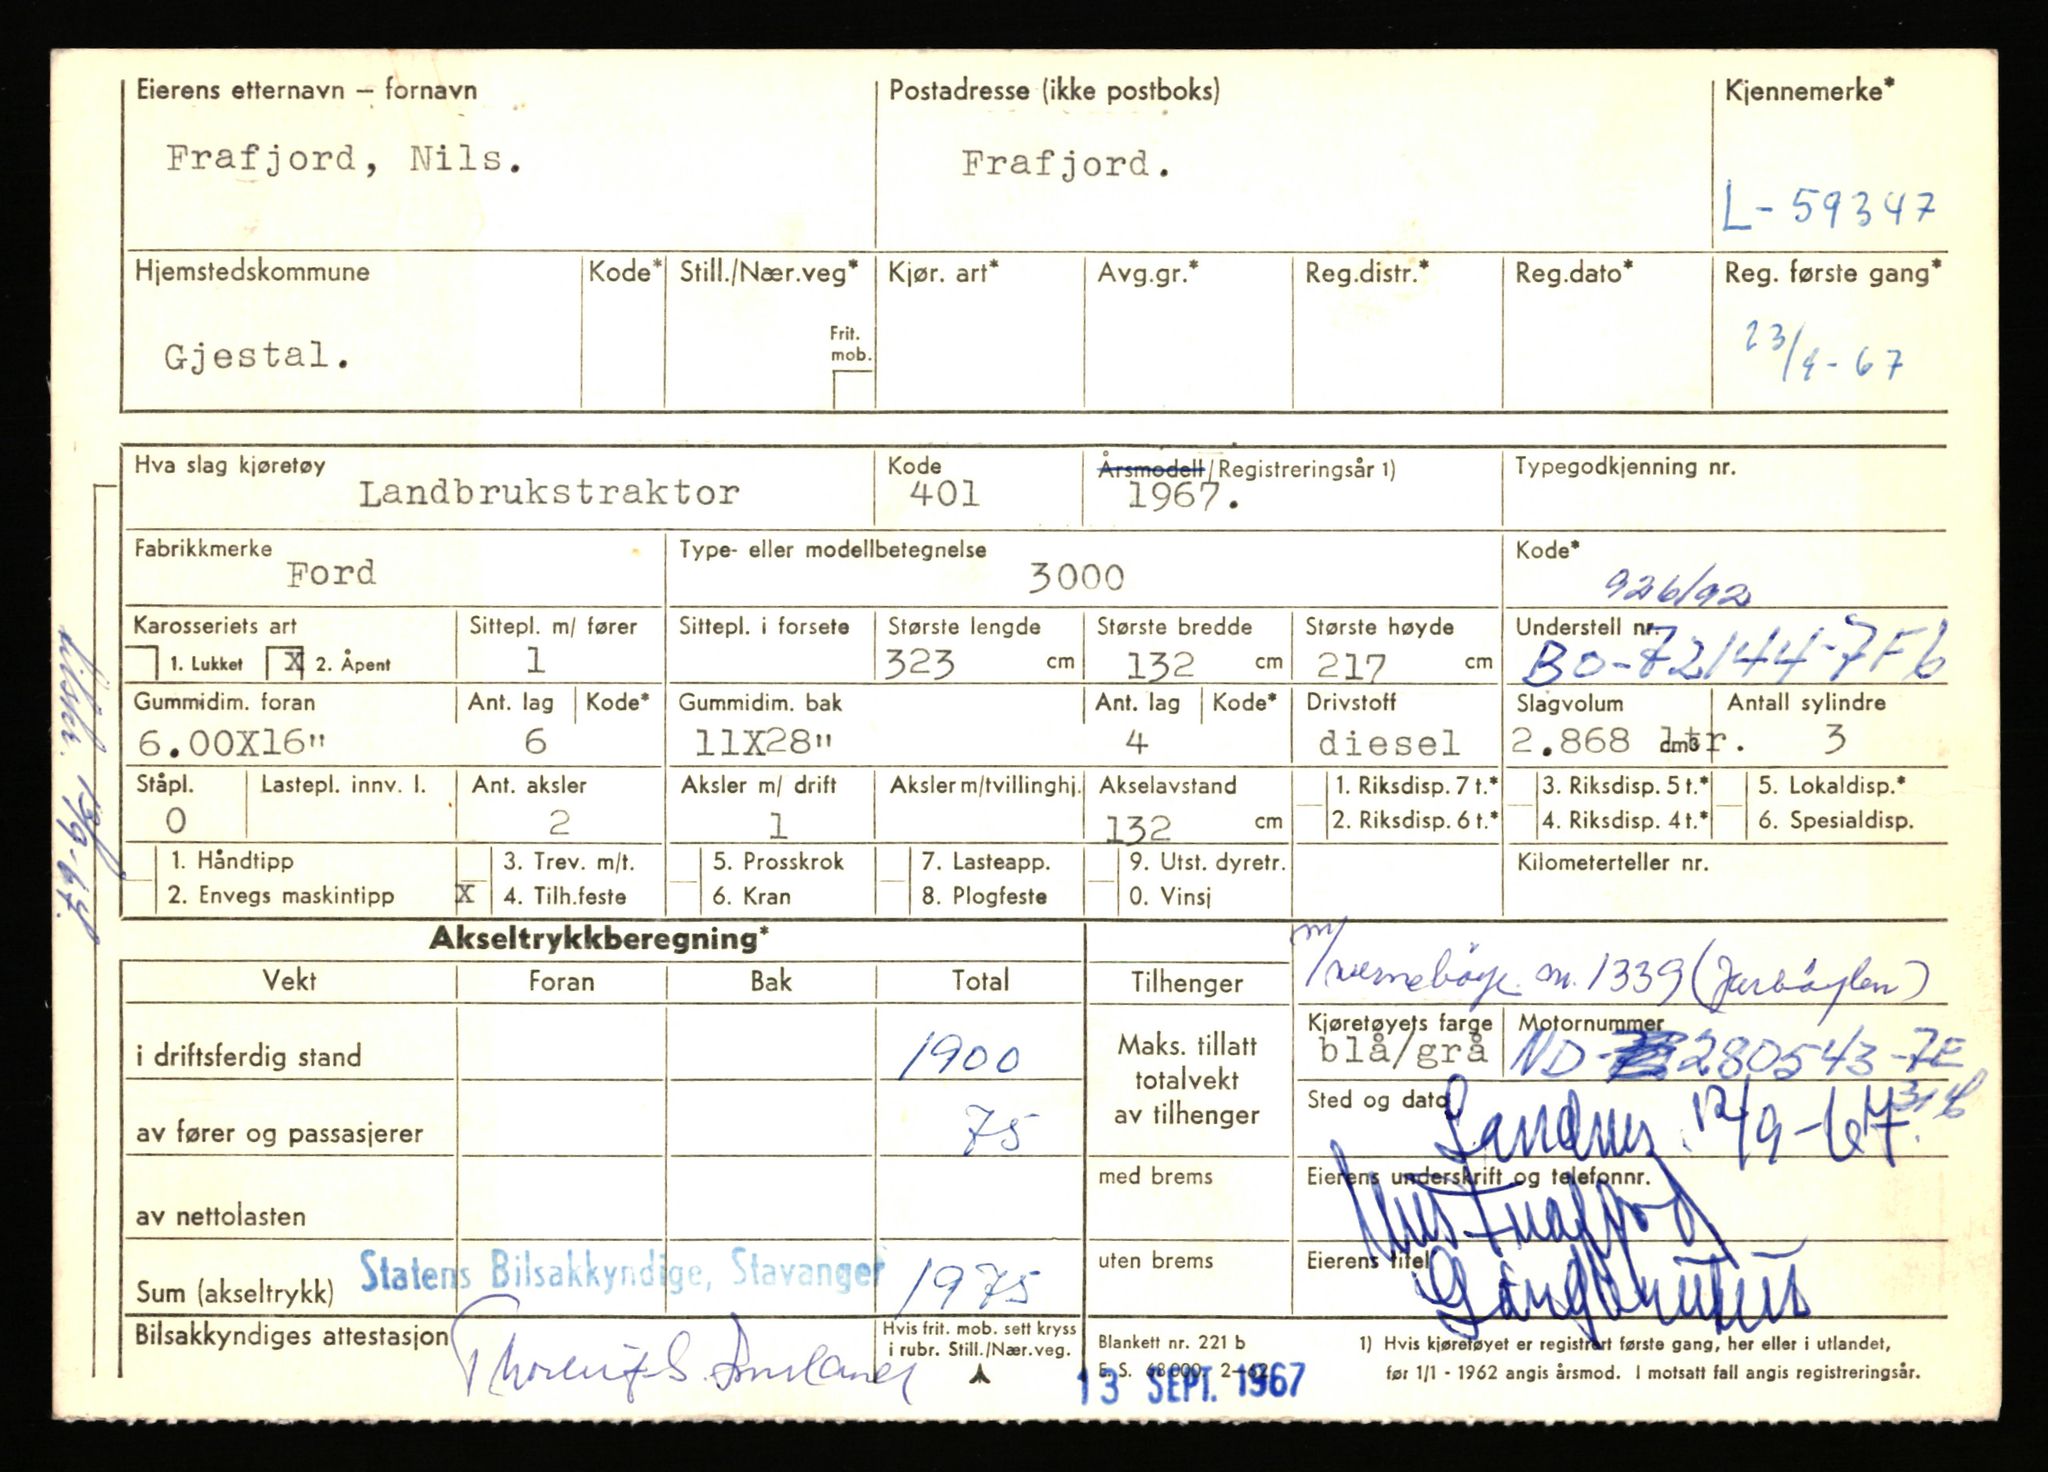 Eierens etternavn – fornavn Postadresse (ikke postboks) Kjennemerke*
Frafjord, Nils. Frafjord.
L- 59347
Hjemstedskommune Kode* Still./Nær.veg* Kjør. art* Avg.gr.* Reg.distr.* Reg.dato* Reg. første gang*
Frit.
mob.
Gjestal. 23/ - 67
Hva slag kjøretøy Kode Årsmodell/Registreringsår 1) Typegodkjenning nr.
Landbrukstraktor 401 1967.
Fabrikkmerke Type- eller modellbetegnelse Kode*
Ford 3000 926/92
Karosseriets art Sittepl. m/ fører Sittepl. i forsete Største lengde Største bredde Største høyde Understell nr.
1. Lukket X 2. Åpent 1 323 cm 132 cm 217 cm BO-72144-7F6
Gummidim. foran Ant. lag Kode* Gummidim. bak Ant. lag Kode* Drivstoff Slagvolum Antall sylindre
6.00X16" 6 11X28" 4 diesel 2.868 dm3 ltr. 3
Ståpl. Lastepl. innv. l. Ant. aksler Aksler m/ drift Aksler m/tvillinghj. Akselavstand 1. Riksdisp. 7 t.* 3. Riksdisp. 5 t.* 5. Lokaldisp.*
0 2 1 132 cm 2. Riksdisp. 6 t.* 4. Riksdisp. 4 t.* 6. Spesialdisp.
1. Håndtipp 3. Trev. m/t. 5. Prosskrok 7. Lasteapp. 9. Utst. dyretr. Kilometerteller nr.
2. Envegs maskintipp X 4. Tilh.feste 6. Kran 8. Plogfeste 0. Vinsj
13/9-67.
Akseltrykkberegning*
m/vernebøyle m. 1339 (Jærbøylen)
Vekt Foran Bak Total Tilhenger
Kjøretøyets farge Motornummer
blå/grå ND- 280543-7E
i driftsferdig stand 1900 Maks. tillatt
totalvekt
av tilhenger
Sted og dato
Sandnes 12/9-67.
av fører og passasjerer 75
med brems Eierens underskrift og telefonnr.
Nils Frafjord
av nettolasten
uten brems Eierens titel
Gårdbruker
Statens Bilsakkyndige, Stavanger
Sum (akseltrykk) 1975
Bilsakkyndiges attestasjon Hvis frit. mob. sett kryss
i rubr. Still./Nær.veg.
Blankett nr. 221 b
E. S. 68000. 2-62
13 SEPT. 1967
1) Hvis kjøretøyet er registrert første gang, her eller i utlandet,
før 1/1 - 1962 angis årsmod. I motsatt fall angis registreringsår.